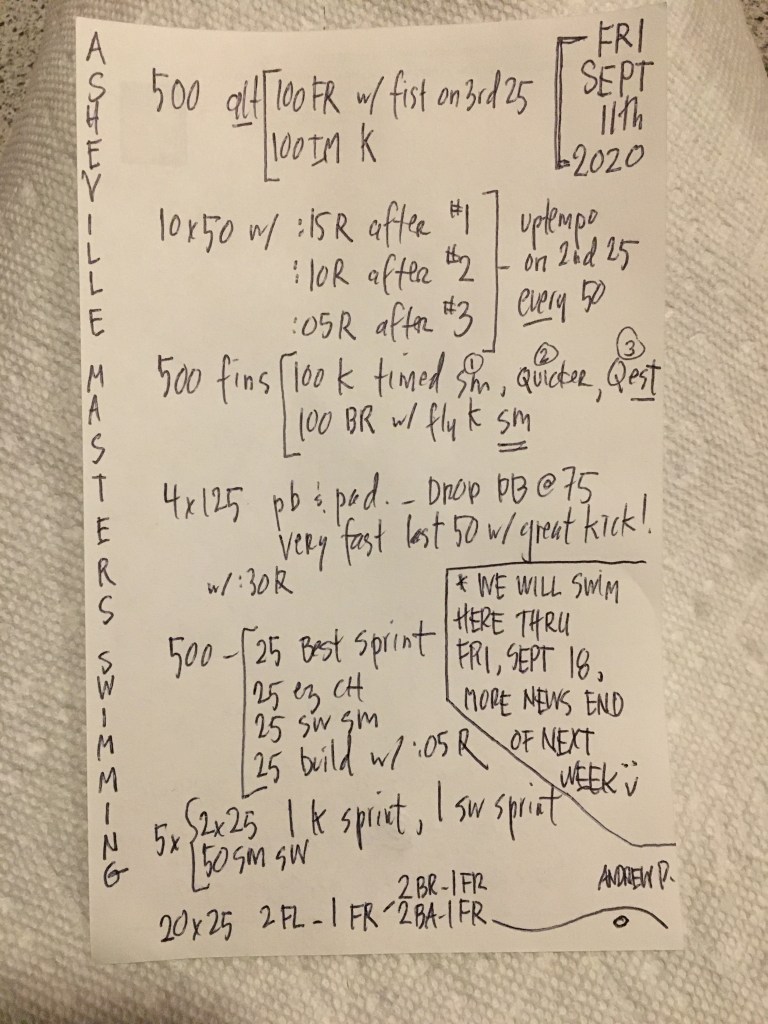 ASHEVILLE MASTERS SWIMMING
FRI
SEPT
11th
2020
500 alt 100 FR w/ fist on 3rd 25
100 IM K
10x50 w/ :15R after #1
:10R after #2
:05R after #3
uptempo
on 2nd 25
every 50
500 fins 100 K timed sm ①, Quicker ②, Qest ③
100 BR w/ fly K sm
4x125 pb & pad. - Drop PB @ 75
very fast last 50 w/ great kick!
w/ :30R
500 - 25 Best sprint
25 ez CH
25 sw sm
25 build w/ :05 R
* WE WILL SWIM
HERE THRU
FRI, SEPT 18.
MORE NEWS END
OF NEXT
WEEK
5x 2x25 1 k sprint, 1 sw sprint
50 sm sw
ANDREW P.
20x25 2 FL - 1 FR
2 BR - 1 FR
2 BA - 1 FR